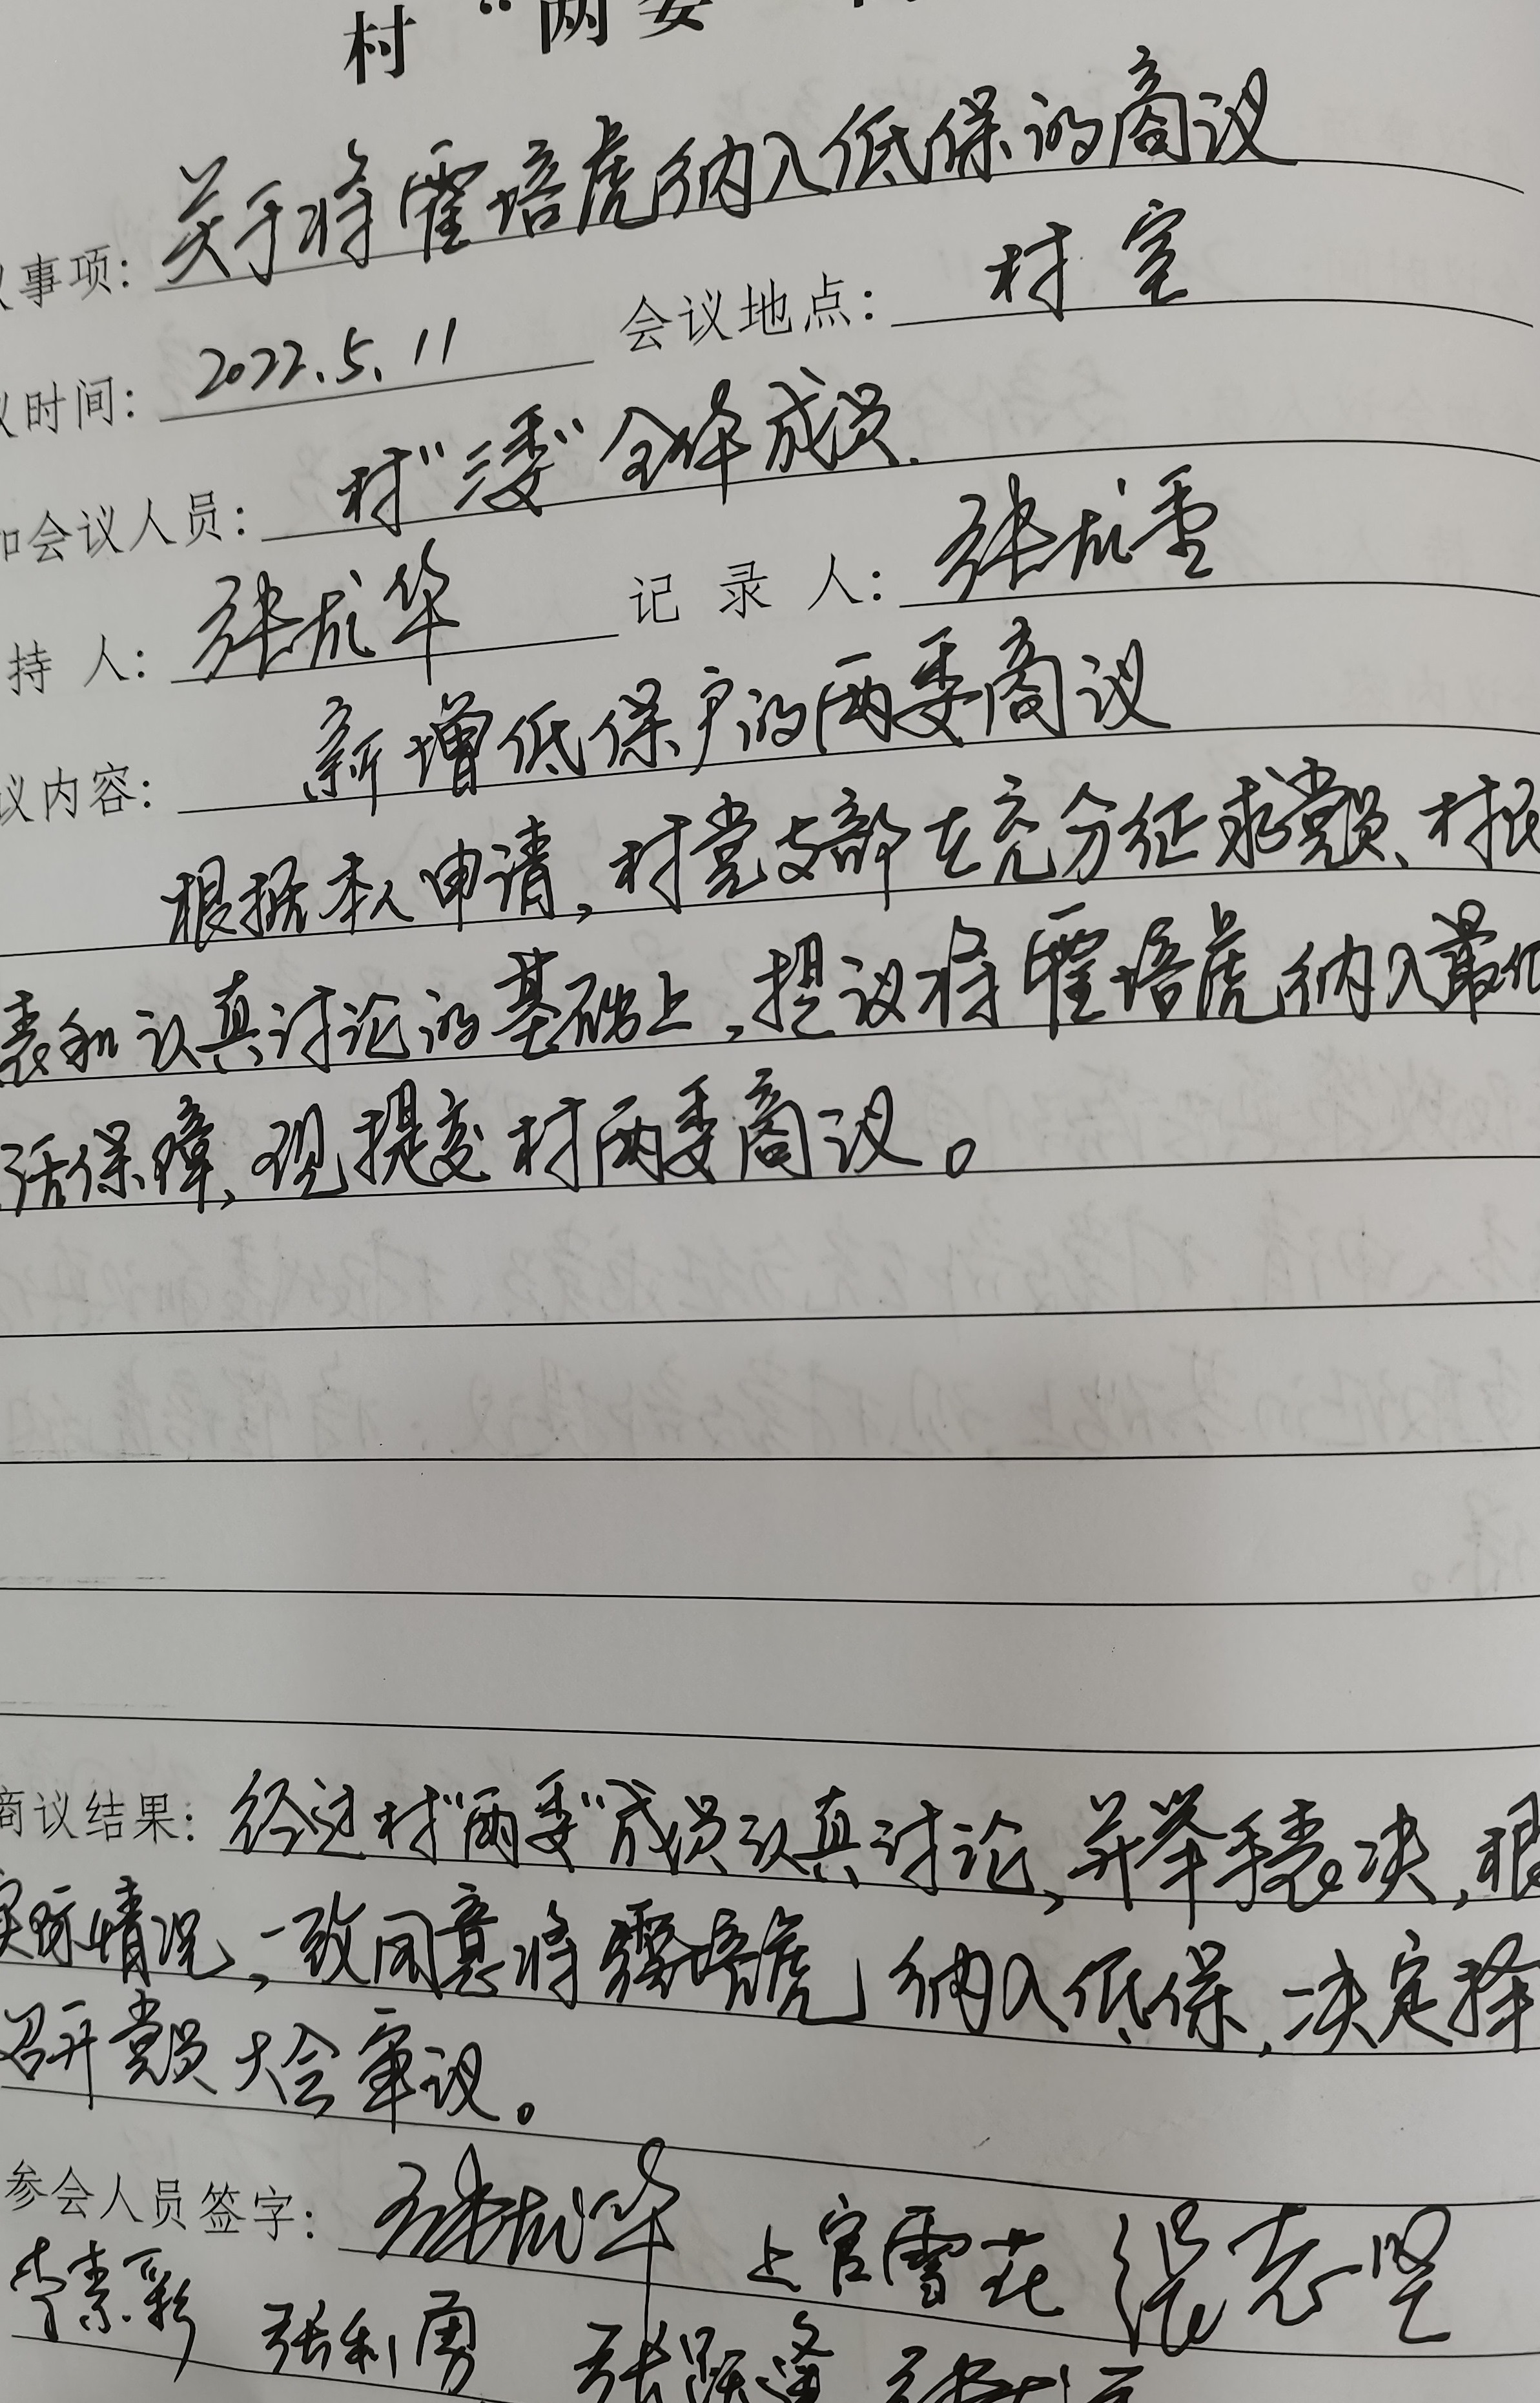 村“两委
事项: 关于将霍培虎纳入低保的商议
议时间: 2022.5.11 会议地点: 村室
会议人员: 村“三委”全体成员.
持 人: 张成华 记 录 人: 张成
议内容: 新增低保户的两委商议
根据本人申请,村党支部在充分征求党员、村民
表和认真讨论的基础上,提议将霍培虎纳入最低
活保障,现提交村两委商议。
商议结果: 经过村“两委”成员认真讨论,并举手表决,根
实际情况,一致同意将霍培虎纳入低保,决定择
召开党员大会审议。
参会人员签字: 张成华 上官雪花 张志坚
李素彩 张利勇 张跃逢